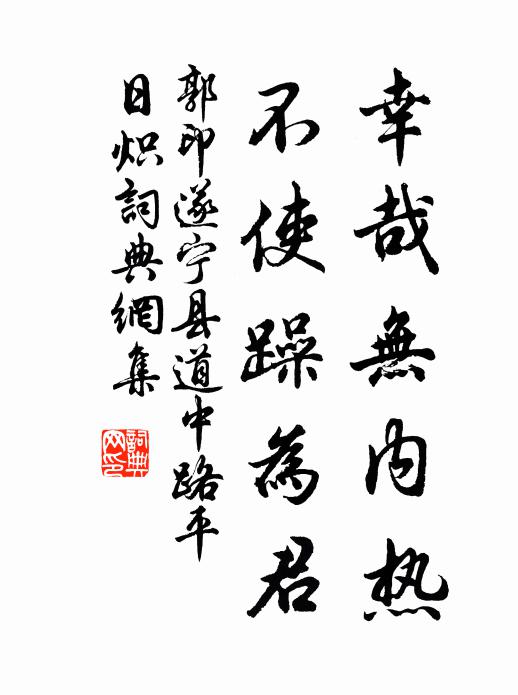 幸哉無内热
不使躁為君
郭印遂宁县道中路平
日炽詞典網集
詞典網印